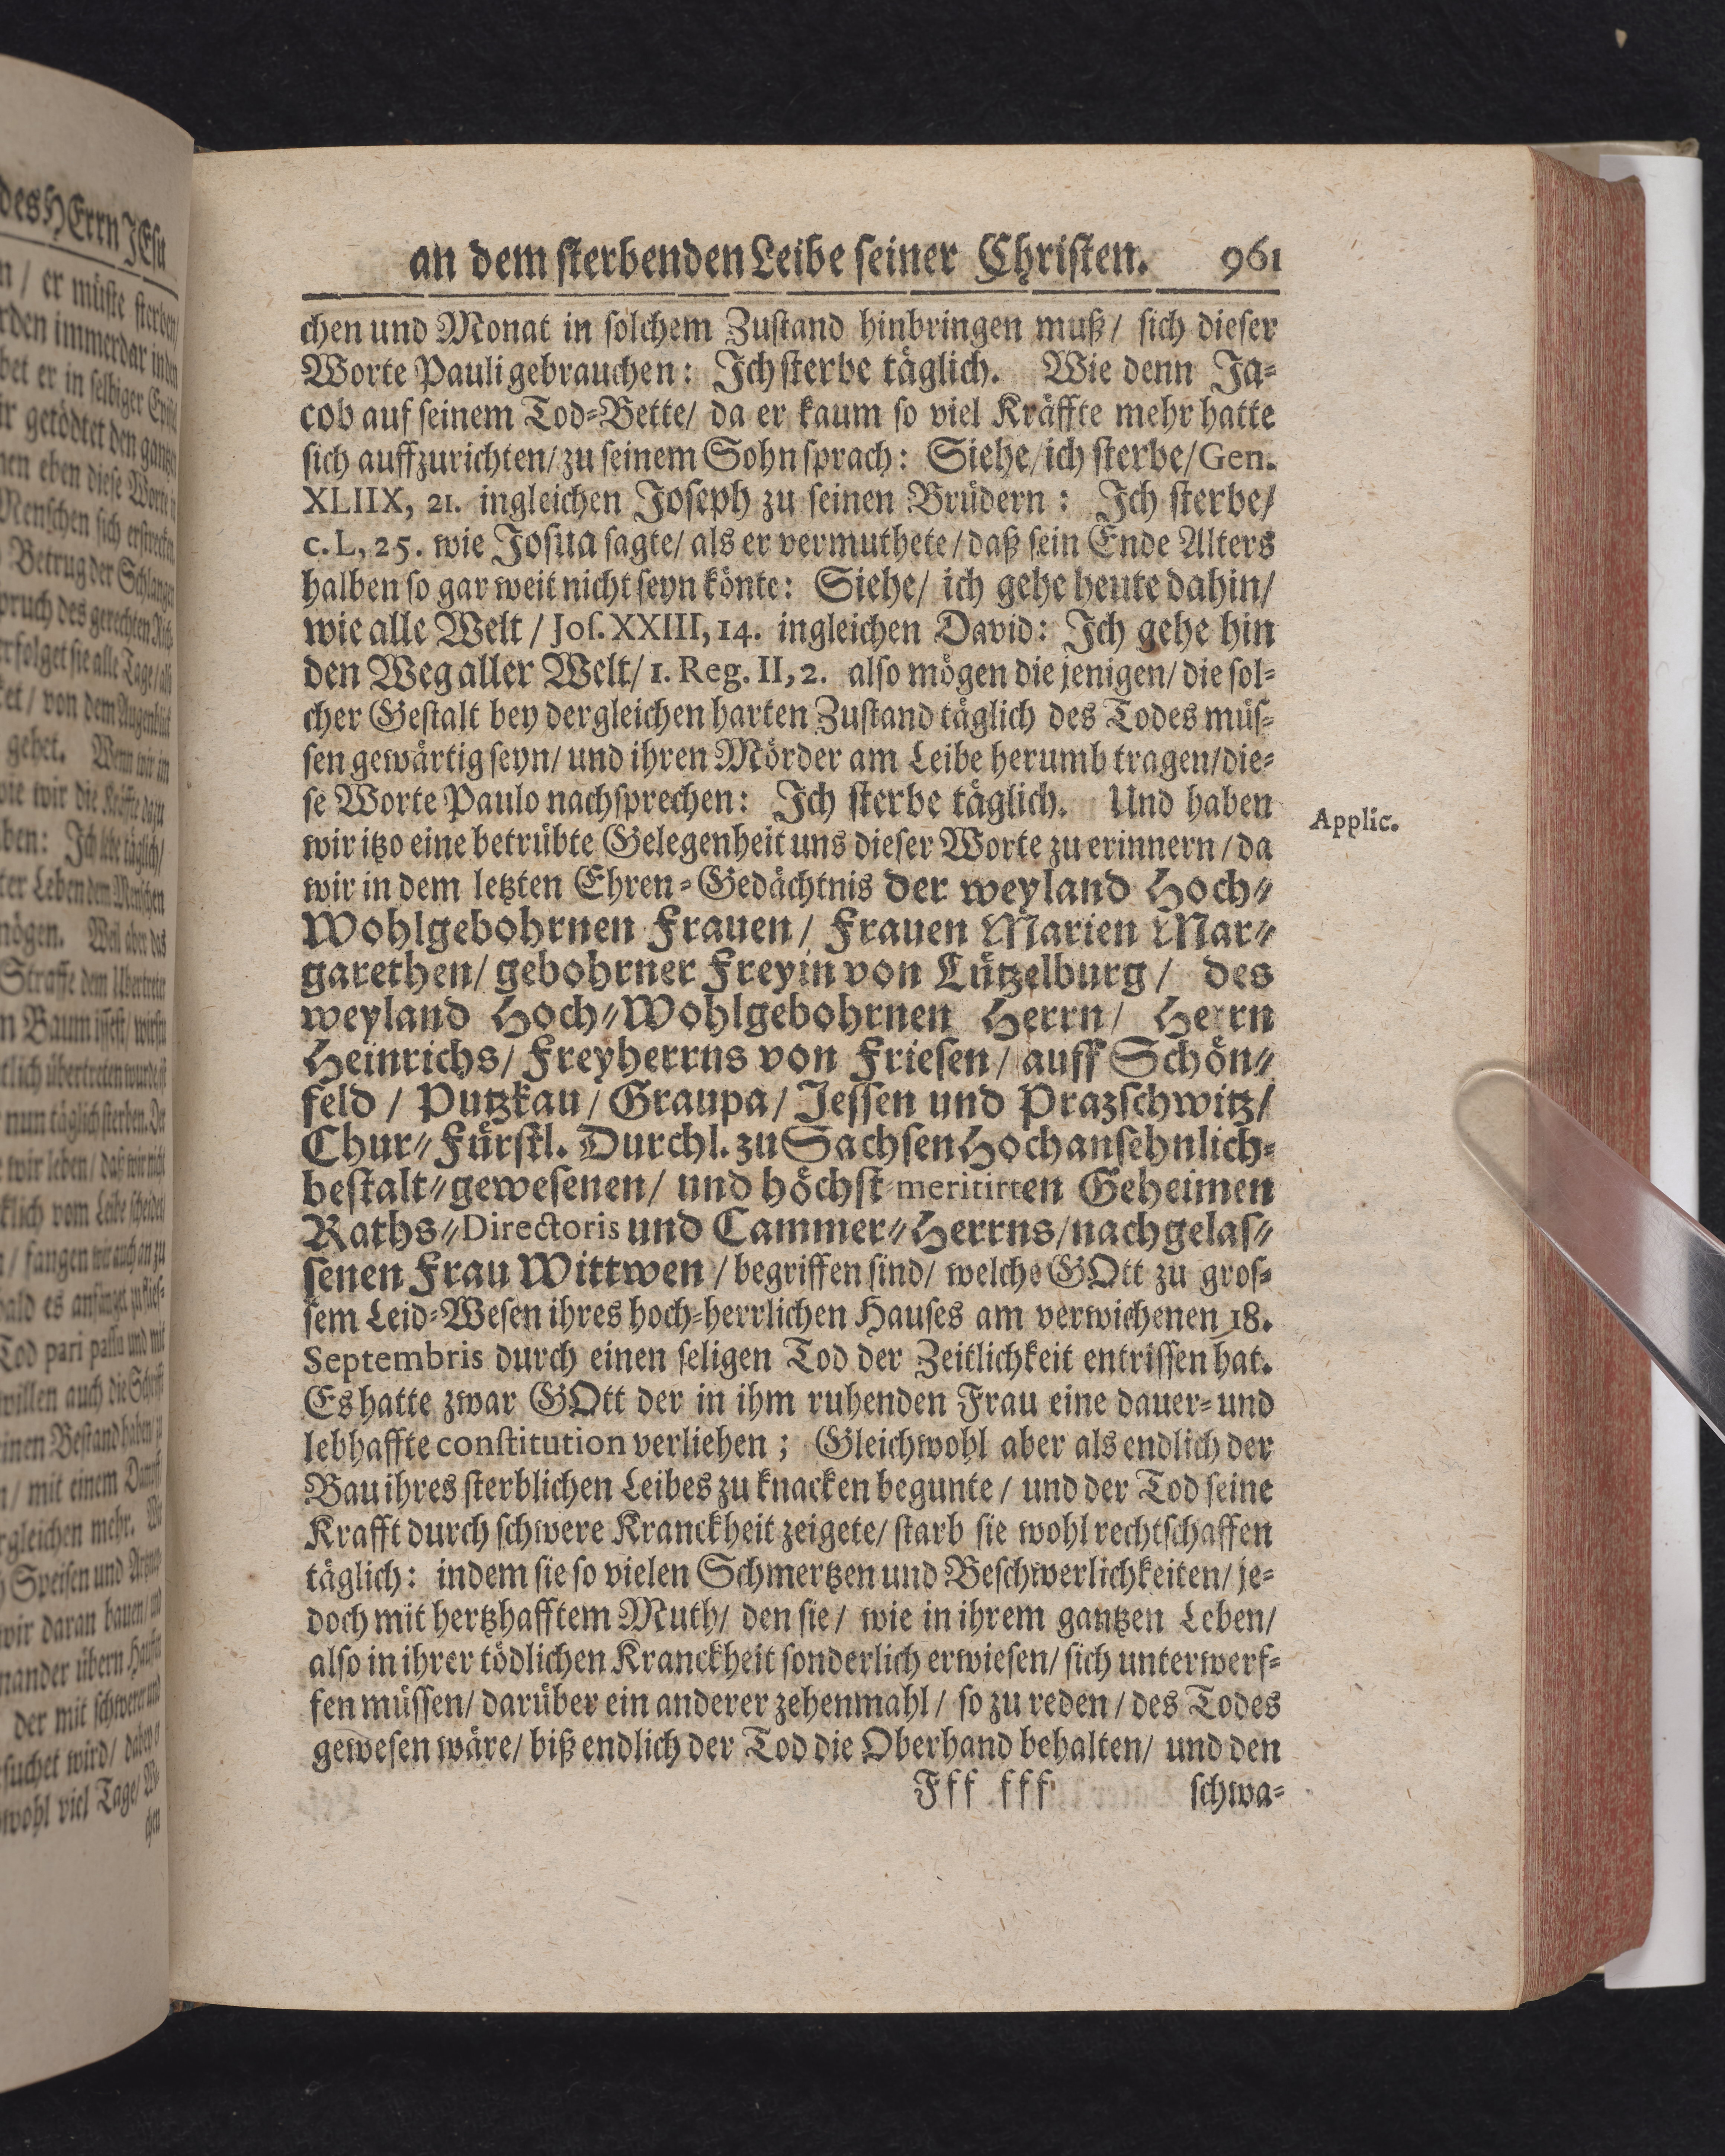 an dem sterbenden Leibe seiner Christen. 961
chen und Monat in solchem Zustand hinbringen muß / sich dieser
Worte Pauli gebrauchen: Ich sterbe täglich. Wie denn Ja-
cob auf seinem Tod-Bette / da er kaum so viel Kräffte mehr hatte
sich auffzurichten / zu seinem Sohn sprach: Siehe / ich sterbe / Gen.
XLIIX, 21. ingleichen Joseph zu seinen Brüdern: Ich sterbe /
c. L, 25. wie Josua sagte / als er vermuthete / daß sein Ende Alters
halben so gar weit nicht seyn könte: Siehe / ich gehe heute dahin /
wie alle Welt / Jos. XXIII, 14. ingleichen David: Ich gehe hin
den Weg aller Welt / 1. Reg. II, 2. also mögen die jenigen / die sol-
cher Gestalt bey dergleichen harten Zustand täglich des Todes müs-
sen gewärtig seyn / und ihren Mörder am Leibe herumb tragen / die-
se Worte Paulo nachsprechen: Ich sterbe täglich. Und haben
Applic.
wir itzo eine betrübte Gelegenheit uns dieser Worte zu erinnern / da
wir in dem letzten Ehren-Gedächtnis der weyland Hoch-
Wohlgebohrnen Frauen / Frauen Marien Mar-
garethen / gebohrner Freyin von Lützelburg / des
weyland Hoch-Wohlgebohrnen Herrn / Herrn
Heinrichs / Freyherrns von Friesen / auff Schön-
feld / Putzkau / Graupa / Jessen und Prazschwitz /
Chur-Fürstl. Durchl. zu Sachsen Hochansehnlich-
bestalt-gewesenen / und höchst-meritirten Geheimen
Raths-Directoris und Cammer-Herrns / nachgelas-
senen Frau Wittwen / begriffen sind / welche GOtt zu gros-
sem Leid-Wesen ihres hoch-herrlichen Hauses am verwichenen 18.
Septembris durch einen seligen Tod der Zeitlichkeit entrissen hat.
Es hatte zwar GOtt der in ihm ruhenden Frau eine dauer- und
lebhaffte constitution verliehen; Gleichwohl aber als endlich der
Bau ihres sterblichen Leibes zu knacken begunte / und der Tod seine
Krafft durch schwere Kranckheit zeigete / starb sie wohl rechtschaffen
täglich: indem sie so vielen Schmertzen und Beschwerlichkeiten / je-
doch mit hertzhafftem Muth / den sie / wie in ihrem gantzen Leben /
also in ihrer tödlichen Kranckheit sonderlich erwiesen / sich unterwerf-
fen müssen / darüber ein anderer zehenmahl / so zu reden / des Todes
gewesen wäre / biß endlich der Tod die Oberhand behalten / und den
Fff fff schwa-